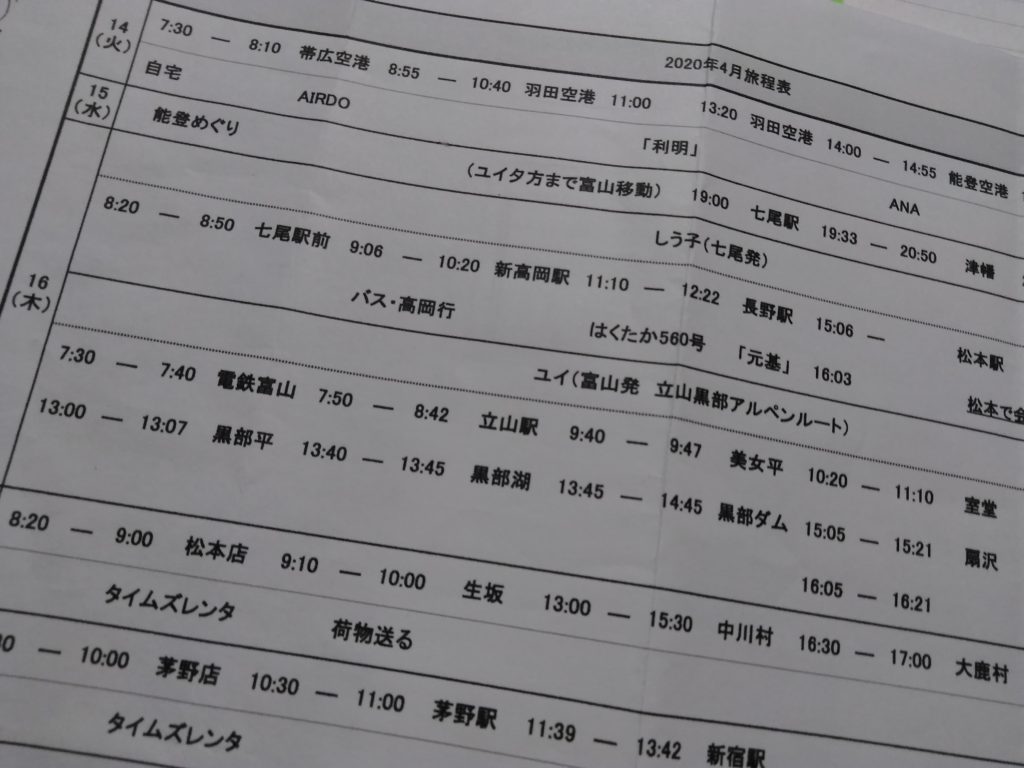 2020年4月旅程表
14 7:30 — 8:10 帯広空港 8:55 — 10:40 羽田空港 11:00 13:20 羽田空港 14:00 — 14:55 能登空港
(火) 自宅 AIRDO 「利明」 ANA
15 能登めぐり (ユイ夕方まで富山移動) 19:00 七尾駅 19:33 — 20:50 津幡
(水)
しう子(七尾発)
8:20 — 8:50 七尾駅前 9:06 — 10:20 新高岡駅 11:10 — 12:22 長野駅 15:06 — 松本駅
16 バス・高岡行 はくたか560号 「元基」 16:03 松本で会
(木)
ユイ(富山発 立山黒部アルペンルート)
7:30 — 7:40 電鉄富山 7:50 — 8:42 立山駅 9:40 — 9:47 美女平 10:20 — 11:10 室堂
13:00 — 13:07 黒部平 13:40 — 13:45 黒部湖 13:45 — 14:45 黒部ダム 15:05 — 15:21 扇沢
16:05 — 16:21
8:20 — 9:00 松本店 9:10 — 10:00 生坂 13:00 — 15:30 中川村 16:30 — 17:00 大鹿村
タイムズレンタ 荷物送る
— 10:00 茅野店 10:30 — 11:00 茅野駅 11:39 — 13:42 新宿駅
タイムズレンタ